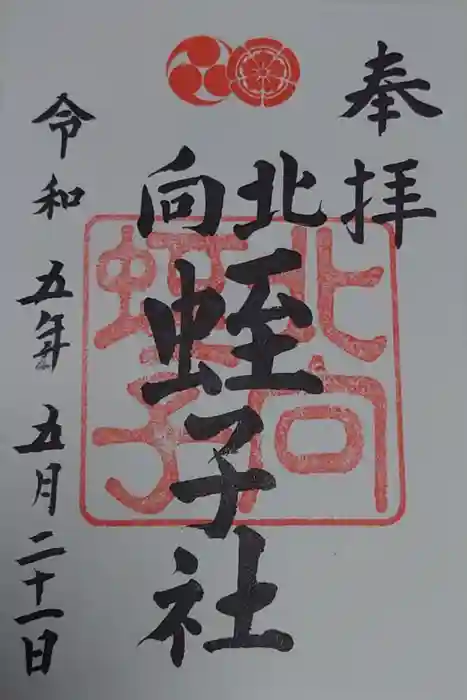 奉拝
北向
蛭子社
令和五年五月二十一日
北向
蛭子